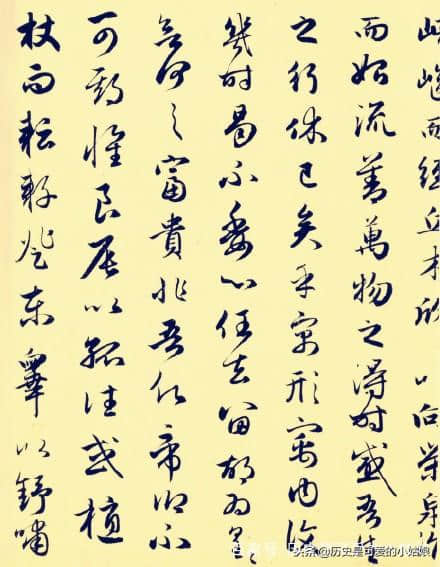 嶇而經丘木欣以向榮泉涓
而始流善萬物之得時感吾生
之行休已矣乎寓形宇內復
幾時曷不委心任去留胡為
何之富貴非吾願帝鄉不
可期懷良辰以孤往或植
杖而耘耔登東皋以舒嘯
头条 @历史是可爱的小姑娘